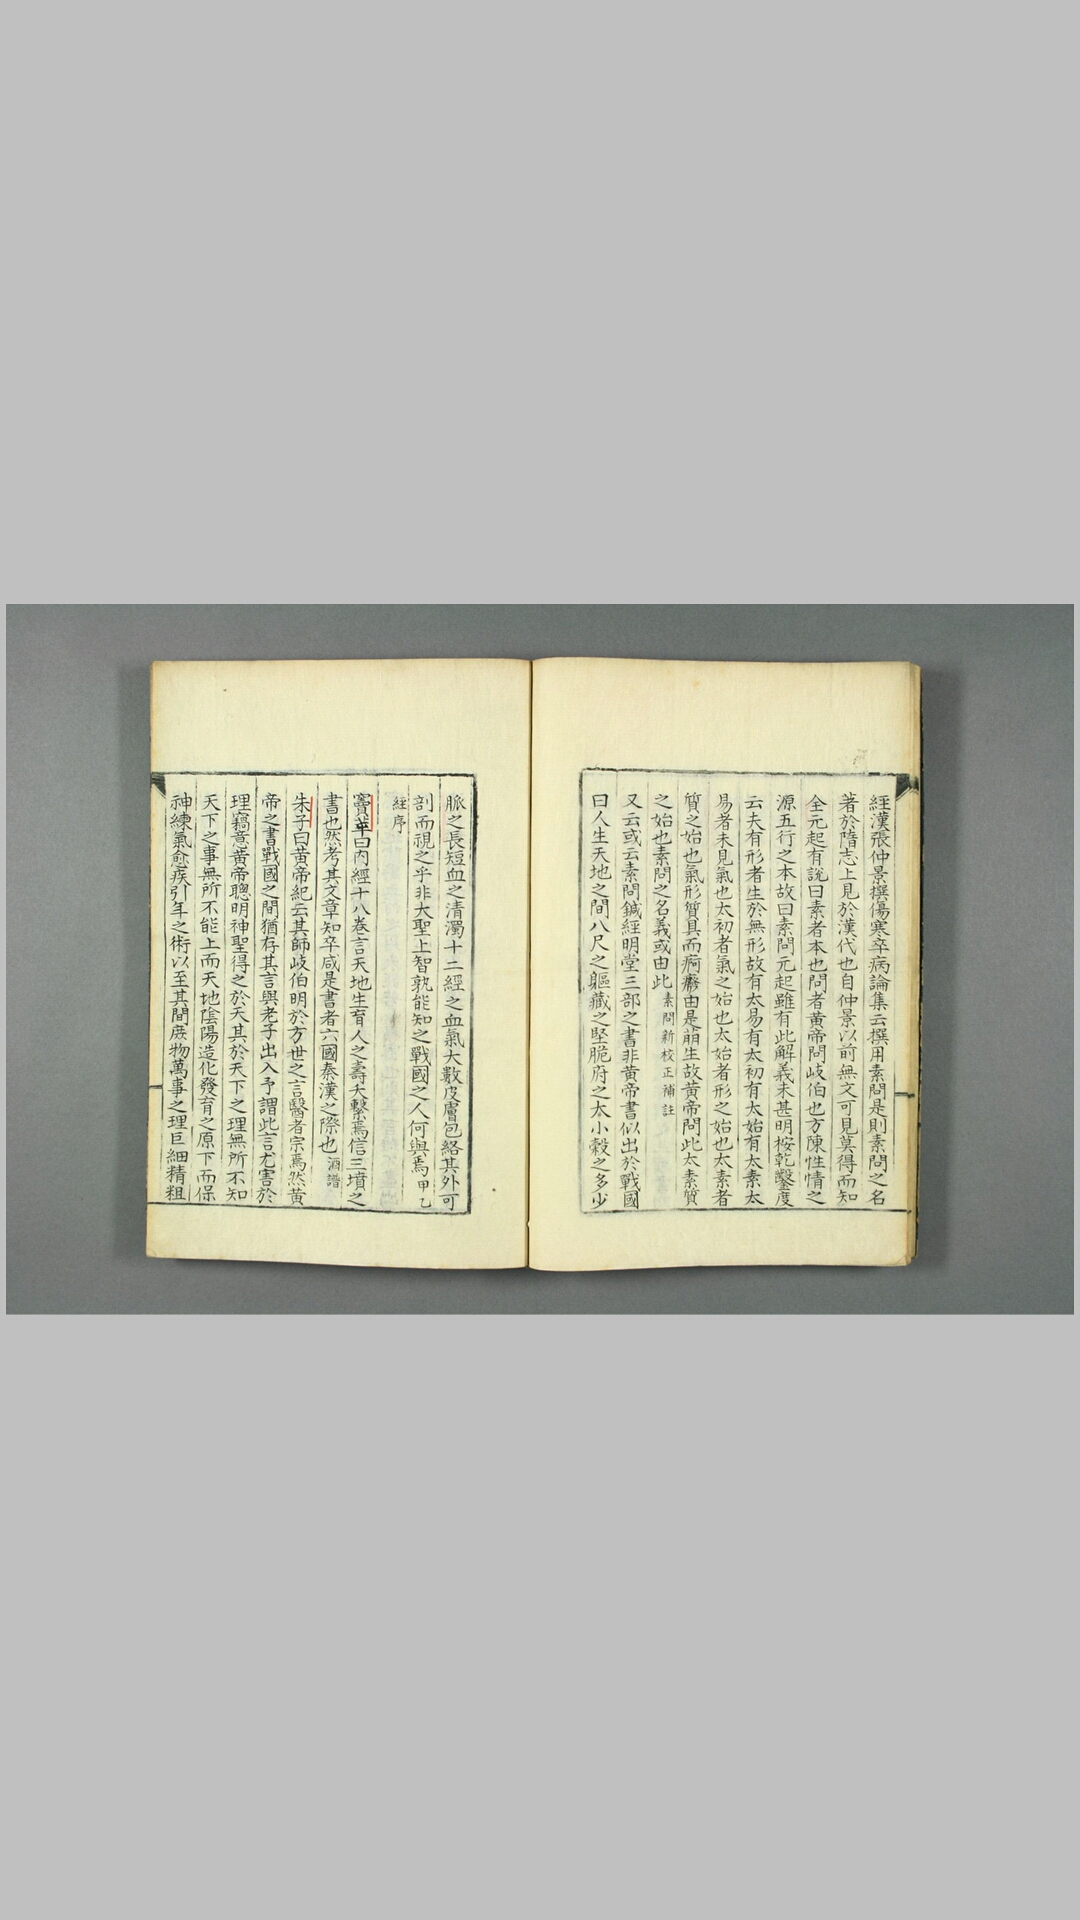 經漢張仲景撰傷寒卒病論集云撰用素問是則素問之名
著於隋志上見於漢代也自仲景以前無文可見莫得而知
全元起有說曰素者本也問者黃帝問岐伯也方陳性情之
源五行之本故曰素問元起雖有此解義未甚明桉乾鑿度
云夫有形者生於無形故有太易有太初有太始有太素太
易者未見氣也太初者氣之始也太始者形之始也太素者
質之始也氣形質具而痾瘵由是萠生故黃帝問此太素質
之始也素問之名義或由此素問新校正補註
又云或云素問鍼經明堂三部之書非黃帝書似出於戰國
曰人生天地之間八尺之軀藏之堅脆府之大小穀之多少
脈之長短血之清濁十二經之血氣大數皮膚包絡其外可
剖而視之乎非大聖上智孰能知之戰國之人何與焉甲乙
經序
竇苹曰內經十八卷言天地生育人之壽夭繫焉信三墳之
書也然考其文章知卒成是書者六國秦漢之際也酒譜
朱子曰黃帝紀云其師岐伯明於方世之言醫者宗焉然黃
帝之書戰國之間猶存其言與老子出入予謂此言尤害於
理竊意黃帝聰明神聖得之於天其於天下之理無所不知
天下之事無所不能上而天地陰陽造化發育之原下而保
神練氣愈疾引年之術以至其間庶物萬事之理巨細精粗